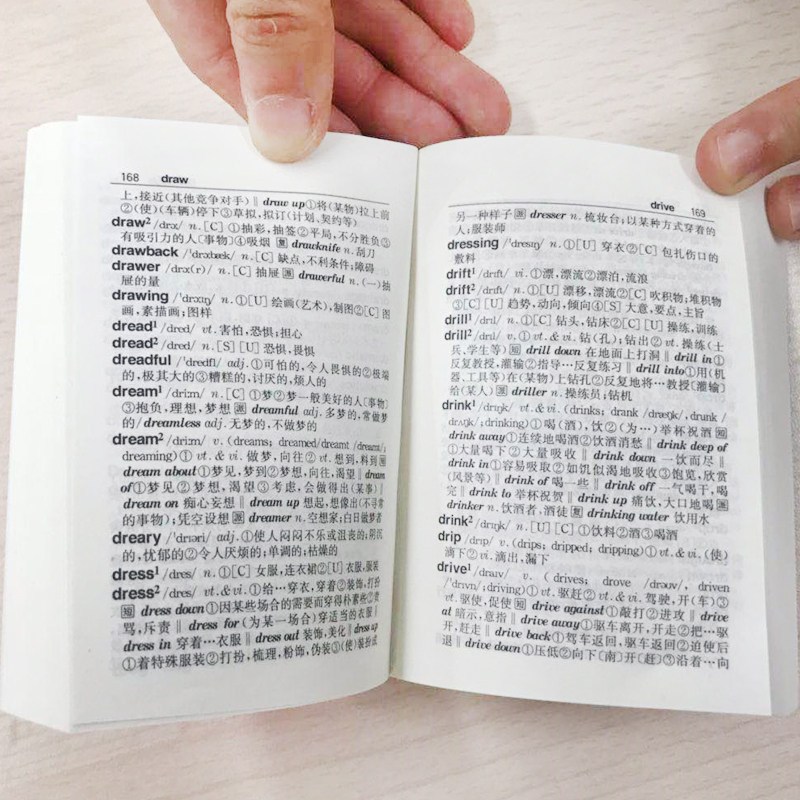 168 draw
上,接近(其他竞争对手)‖draw up①将(某物)拉上前
②(使)(车辆)停下③草拟,拟订(计划、契约等)
draw² /drɔː/ n. [C] ①抽彩,抽签②平局,不分胜负③
有吸引力的人[事物]④吸烟 drawknife n. 刮刀
drawback /ˈdrɔːbæk/ n. [C] 缺点,不利条件;障碍
drawer /drɔː(r)/ n. [C] 抽屉 drawerful n. (一)抽
屉的量
drawing /ˈdrɔːɪŋ/ n. ①[U] 绘画(艺术),制图②[C] 图
画,素描画;图样
dread¹ /dred/ vt. 害怕,恐惧;担心
dread² /dred/ n. [S] [U] 恐惧,畏惧
dreadful /ˈdredfl/ adj. ①可怕的,令人畏惧的②极端
的,极其大的③糟糕的,讨厌的,烦人的
dream¹ /driːm/ n. [C] ①梦②梦一般美好的人[事物]
③抱负,理想,梦想 dreamful adj. 多梦的,常做梦
的/dreamless adj. 无梦的,不做梦的
dream² /driːm/ v. (dreams; dreamed/dreamt /dremt/;
dreaming) ① vt. & vi. 做梦,向往② vt. 想到,料到
dream about①梦见,梦到②梦想,向往,渴望‖dream
of①梦见②梦想,渴望③考虑,会做得出(某事)‖
dream on 痴心妄想‖dream up 想起,想像出(不寻常
的事物);凭空设想 dreamer n. 空想家;白日做梦者
dreary /ˈdrɪəri/ adj. ①使人闷闷不乐或沮丧的;阴沉
的,忧郁的②令人厌烦的;单调的;枯燥的
dress¹ /dres/ n. ①[C] 女服,连衣裙②[U] 衣服,服装
dress² /dres/ vt. & vi. ①给…穿衣,穿着②装饰,打扮
dress down①因某些场合的需要而穿得朴素些②责
骂,斥责‖dress for (为某一场合)穿适当的衣服‖
dress in 穿着…衣服‖dress out 装饰,美化‖dress up
①着特殊服装②打扮,梳理,粉饰,伪装③(使)装扮成
drive 169
另一种样子 dresser n. 梳妆台;以某种方式穿着的
人;服装师
dressing /ˈdresɪŋ/ n. ①[U] 穿衣②[C] 包扎伤口的
敷料
drift¹ /drɪft/ vi. ①漂,漂流②漂泊,流浪
drift² /drɪft/ n. ①[U] 漂移,漂流②[C] 吹积物;堆积物
③[C] [U] 趋势,动向,倾向④[S] 大意,要点,主旨
drill¹ /drɪl/ n. ①[C] 钻头,钻床②[C] [U] 操练,训练
drill² /drɪl/ v. ① vt. & vi. 钻(孔);钻出② vt. 操练(士
兵、学生等) drill down 在地面上打洞‖drill in①
反复教授,灌输②指导…反复练习‖drill into①用(机
器、工具等)在(某物)上钻孔②反复地将…教授[灌输]
给(某人) driller n. 操练员;钻机
drink¹ /drɪŋk/ vt. & vi. (drinks; drank /dræŋk/, drunk /
drʌŋk/;drinking) ①喝(酒),饮②(为…)举杯祝酒
drink away①连续地喝酒②饮酒消愁‖drink deep of
①大量喝下②大量吸收‖drink down 一饮而尽‖
drink in①容易吸取②如饥似渴地吸收③饱览,欣赏
(风景等)‖drink of 喝一些‖drink off 一气喝干,喝
完‖drink to 举杯祝贺‖drink up 痛饮,大口地喝
drinker n. 饮酒者,酒徒 drinking water 饮用水
drink² /drɪŋk/ n. [U] [C] ①饮料②酒③喝酒
drip /drɪp/ v. (drips; dripped; dripping) ① vt. & vi. (使)
滴下② vi. 滴出,漏下
drive¹ /draɪv/ v. (drives; drove /drəʊv/, driven
/ˈdrɪvn/;driving) ① vt. 驱赶② vt. & vi. 驾驶,开(车)③
vt. 驱使,促使 drive against①敲打②进攻‖drive
at 暗示,意指‖drive away①驱车离开,开走②把…驱
开,赶走‖drive back①驾车返回,驱车返回②迫使后
退‖drive down①压低②向下[南]开[赶]③沿着…向